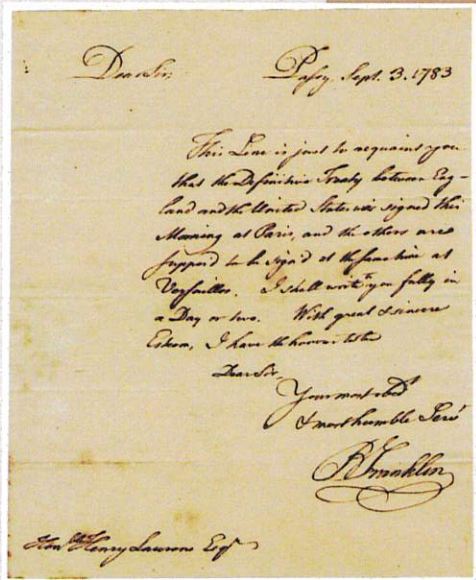 Dear Sir, Passy, Sept. 3. 1783
This Line is just to acquaint you
that the Definitive Treaty between Eng-
land and the United States was signed this
Morning at Paris, and the others are
suppos'd to be sign'd at the same time at
Versailles. I shall write to you fully in
a Day or two. With great & sincere
Esteem, I have the honour to be
Dear Sir,
Your most obed.t
& most humble Serv.t
B Franklin
Hon.ble Henry Laurens Esq.r